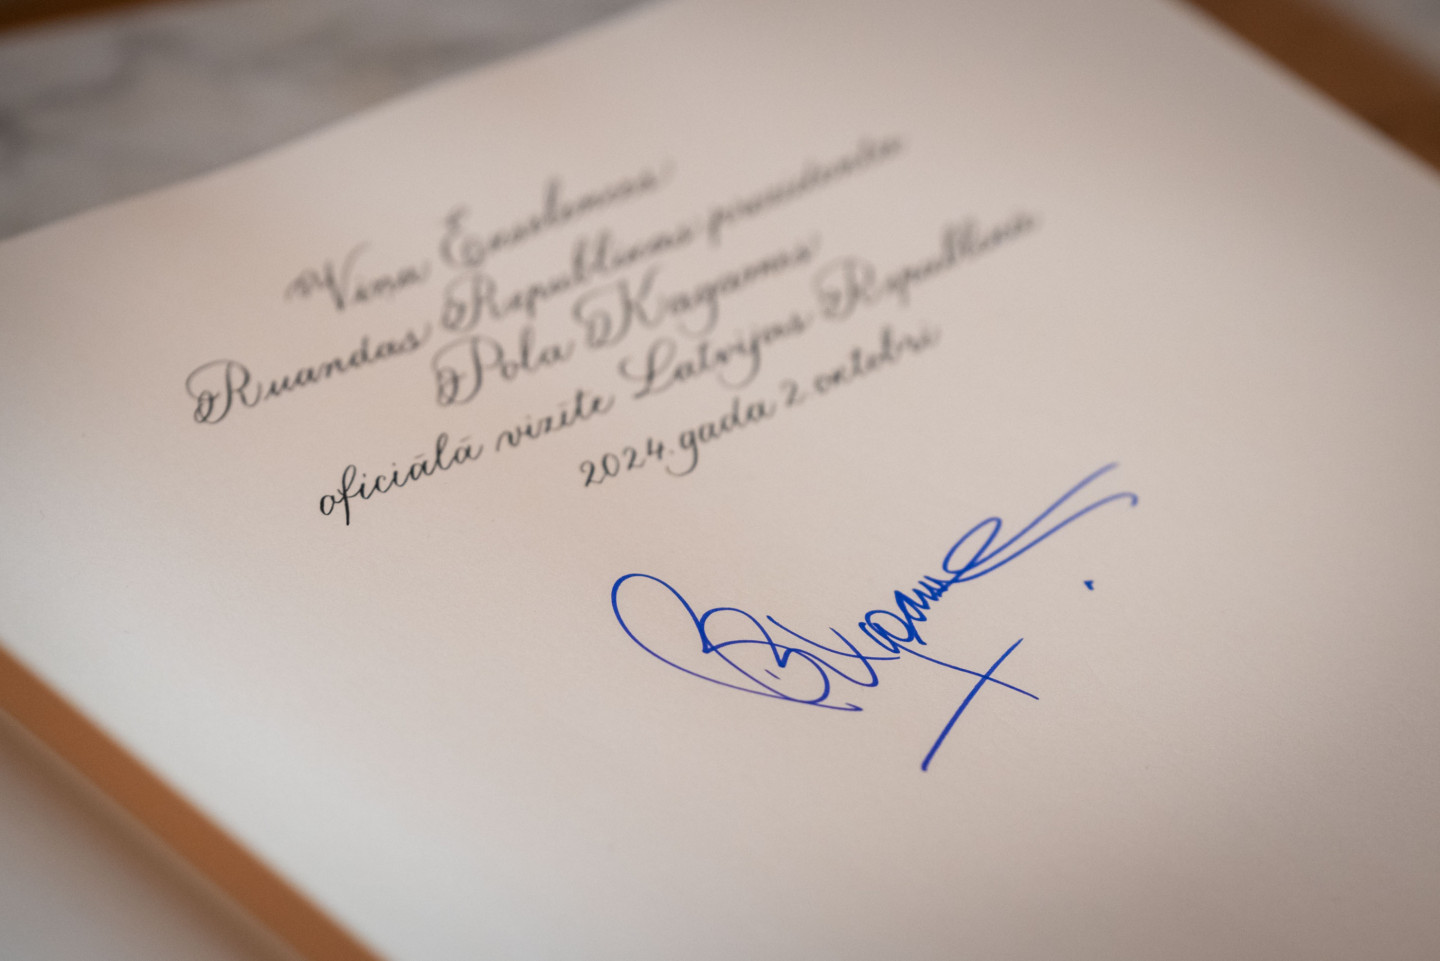 Viņa Ekselences
Ruandas Republikas prezidenta
Pola Kagames
oficiālā vizīte Latvijas Republikā
2024. gada 2. oktobrī